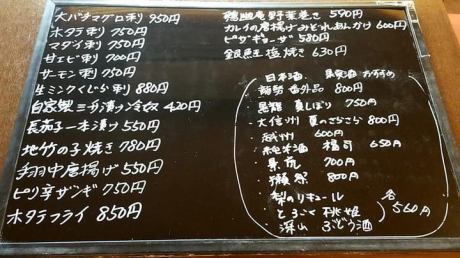 大バチマグロ刺 950円
ホタテ刺 750円
マダイ刺 750円
甘エビ刺 700円
サーモン刺 750円
生ミンクくじら刺 880円
自家製 三升漬け冷奴 420円
長茄子一本漬け 550円
地竹の子焼き 780円
手羽中唐揚げ 550円
ピリ辛ザンギ 750円
ホタテフライ 850円
野菜巻き 590円
カレイの唐揚げみぞれあんかけ 600円
ピザギョーザ 580円
銀鮭塩焼き 630円
日本酒 おすすめ
800円
夏しぼり 750円
大信州 夏のさらさら 800円
越州 600円
純米酒 650円
700円
獺祭 800円
梨のリキュール
桃姫
深山 ぶどう酒
各560円